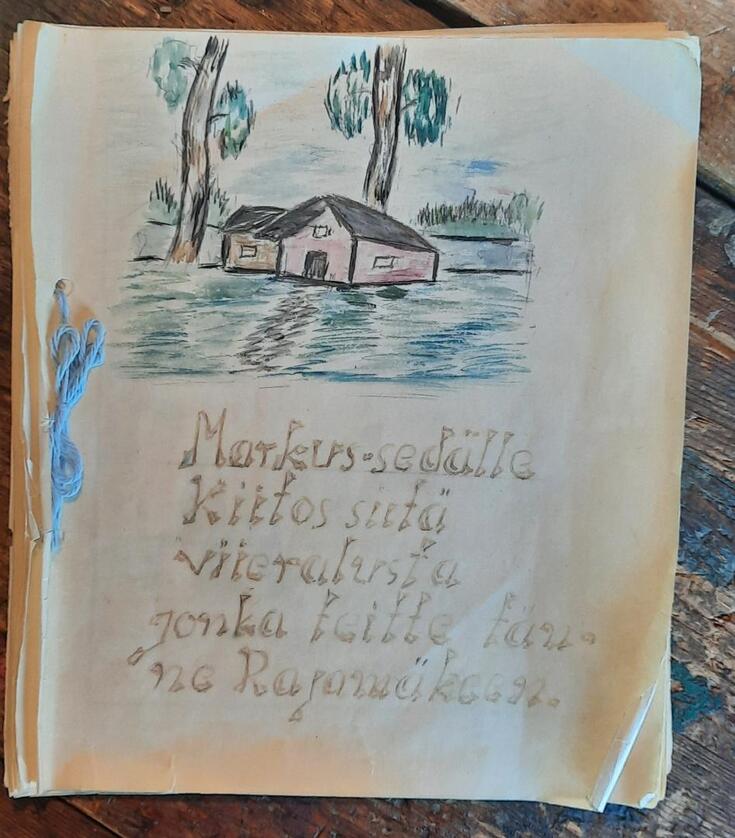 Markus-sedälle
Kiitos siitä
viieralusta
jonka teitte tän-
ne Rajamäkeen.